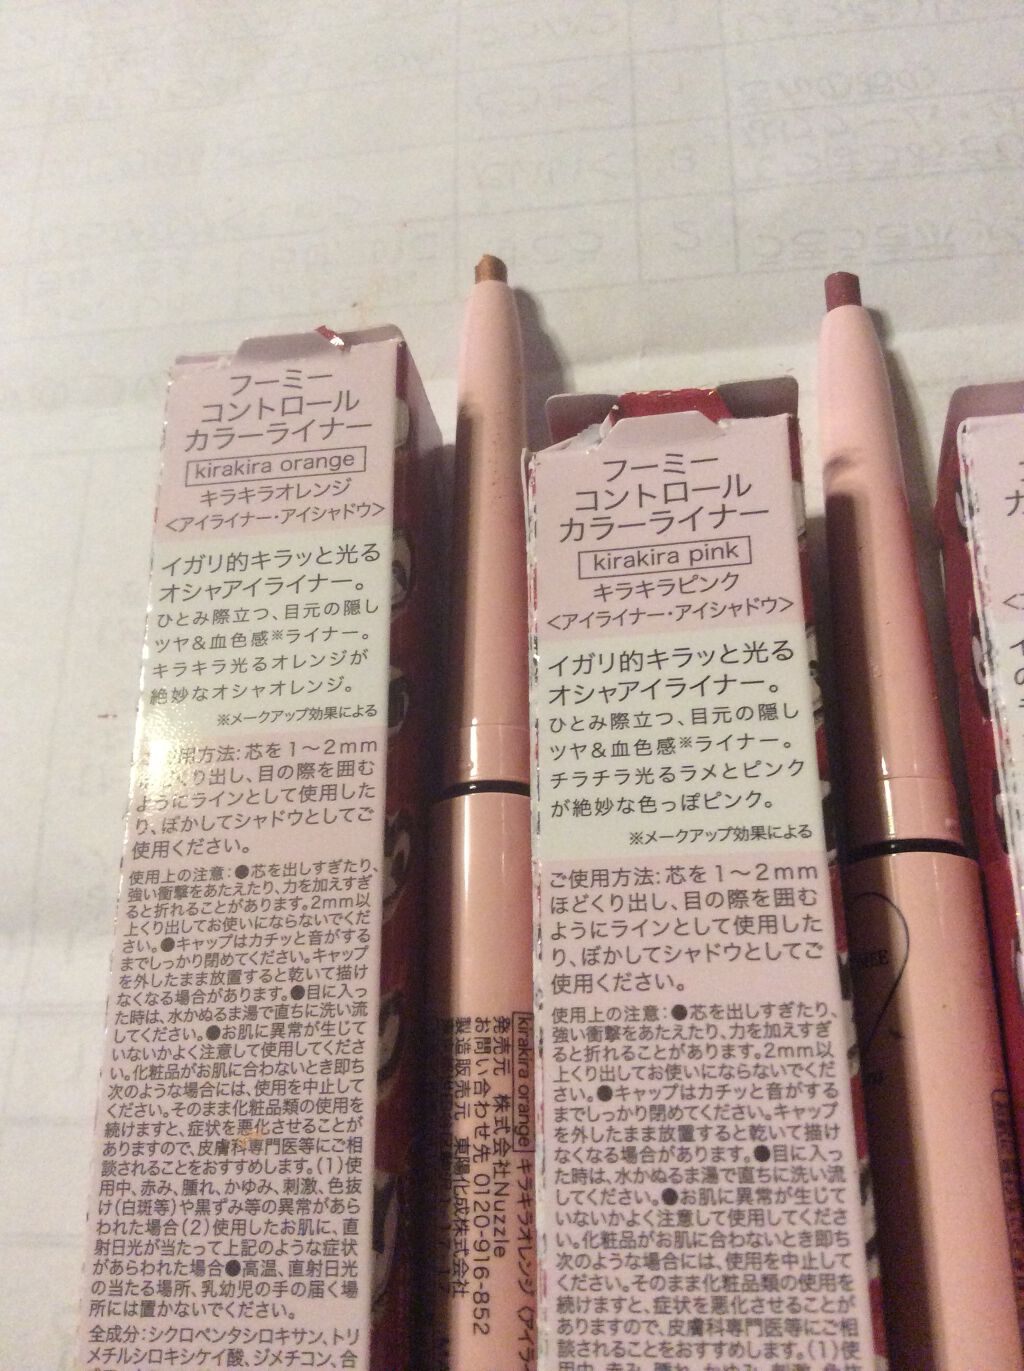 フーミー
コントロール
カラーライナー
kirakira orange
キラキラオレンジ
<アイライナー・アイシャドウ>
イガリ的キラッと光る
オシャアイライナー。
ひとみ際立つ、目元の隠し
ツヤ&血色感※ライナー。
キラキラ光るオレンジが
絶妙なオシャオレンジ。
※メークアップ効果による
用方法:芯を1〜2mm
くり出し、目の際を囲む
ようにラインとして使用した
り、ぼかしてシャドウとしてご
使用ください。
使用上の注意:●芯を出しすぎたり、
強い衝撃をあたえたり、力を加えすぎ
ると折れることがあります。2mm以
上くり出してお使いにならないでくだ
さい。●キャップはカチッと音がする
までしっかり閉めてください。キャップ
を外したまま放置すると乾いて描け
なくなる場合があります。●目に入っ
た時は、水かぬるま湯で直ちに洗い流
してください。●お肌に異常が生じて
いないかよく注意して使用してくださ
い。化粧品がお肌に合わないとき即ち
次のような場合には、使用を中止して
ください。そのまま化粧品類の使用を
続けますと、症状を悪化させることが
ありますので、皮膚科専門医等にご相
談されることをおすすめします。(1)使
用中、赤み、腫れ、かゆみ、刺激、色抜
け(白斑等)や黒ずみ等の異常があら
われた場合(2)使用したお肌に、直
射日光が当たって上記のような症状
があらわれた場合●高温、直射日光
の当たる場所、乳幼児の手の届く場
所には置かないでください。
全成分:シクロペンタシロキサン、トリ
メチルシロキシケイ酸、ジメチコン、合
kirakira orange キラキラオレンジ〈アイラ
発売元 株式会社Nuzzle
お問い合わせ先 0120-916-852
製造販売元 東陽化成株式会社
フーミー
コントロール
カラーライナー
kirakira pink
キラキラピンク
<アイライナー・アイシャドウ>
イガリ的キラッと光る
オシャアイライナー。
ひとみ際立つ、目元の隠し
ツヤ&血色感※ライナー。
チラチラ光るラメとピンク
が絶妙な色っぽピンク。
※メークアップ効果による
ご使用方法:芯を1〜2mm
ほどくり出し、目の際を囲む
ようにラインとして使用した
り、ぼかしてシャドウとしてご
使用ください。
使用上の注意:●芯を出しすぎたり、
強い衝撃をあたえたり、力を加えすぎ
ると折れることがあります。2mm以
上くり出してお使いにならないでくだ
さい。●キャップはカチッと音がする
までしっかり閉めてください。キャップ
を外したまま放置すると乾いて描け
なくなる場合があります。●目に入っ
た時は、水かぬるま湯で直ちに洗い流
してください。●お肌に異常が生じて
いないかよく注意して使用してくださ
い。化粧品がお肌に合わないとき即ち
次のような場合には、使用を中止して
ください。そのまま化粧品類の使用を
続けますと、症状を悪化させることが
ありますので、皮膚科専門医等にご相
談されることをおすすめします。(1)使
用中、赤み、腫れ、かゆみ、刺激、色抜